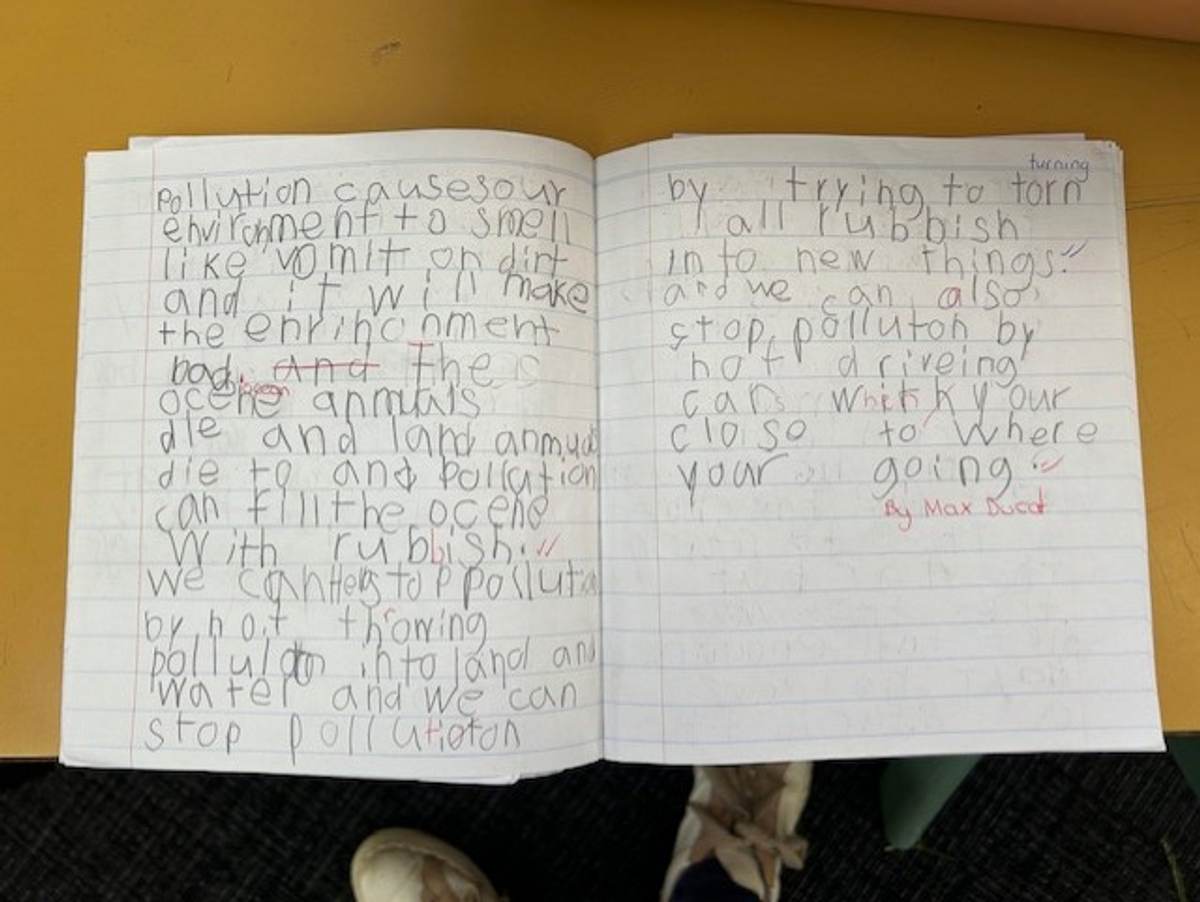 pollution causes our
environment to smell
like vomit on dirt
and it will make
the enrincnment
bad. and The
ocene anmuals
ocean
die and land anmuals
die to and pollution
can fill the ocene
with rubbish.
we can stop pollution
by not throwing
pollution into land and
water and we can
stop pollution
turning
by trying to torn
all rubbish
into new things.
and we can also
stop polluton by
not driveing
cars your
closo to where
your going.
By Max Ducat